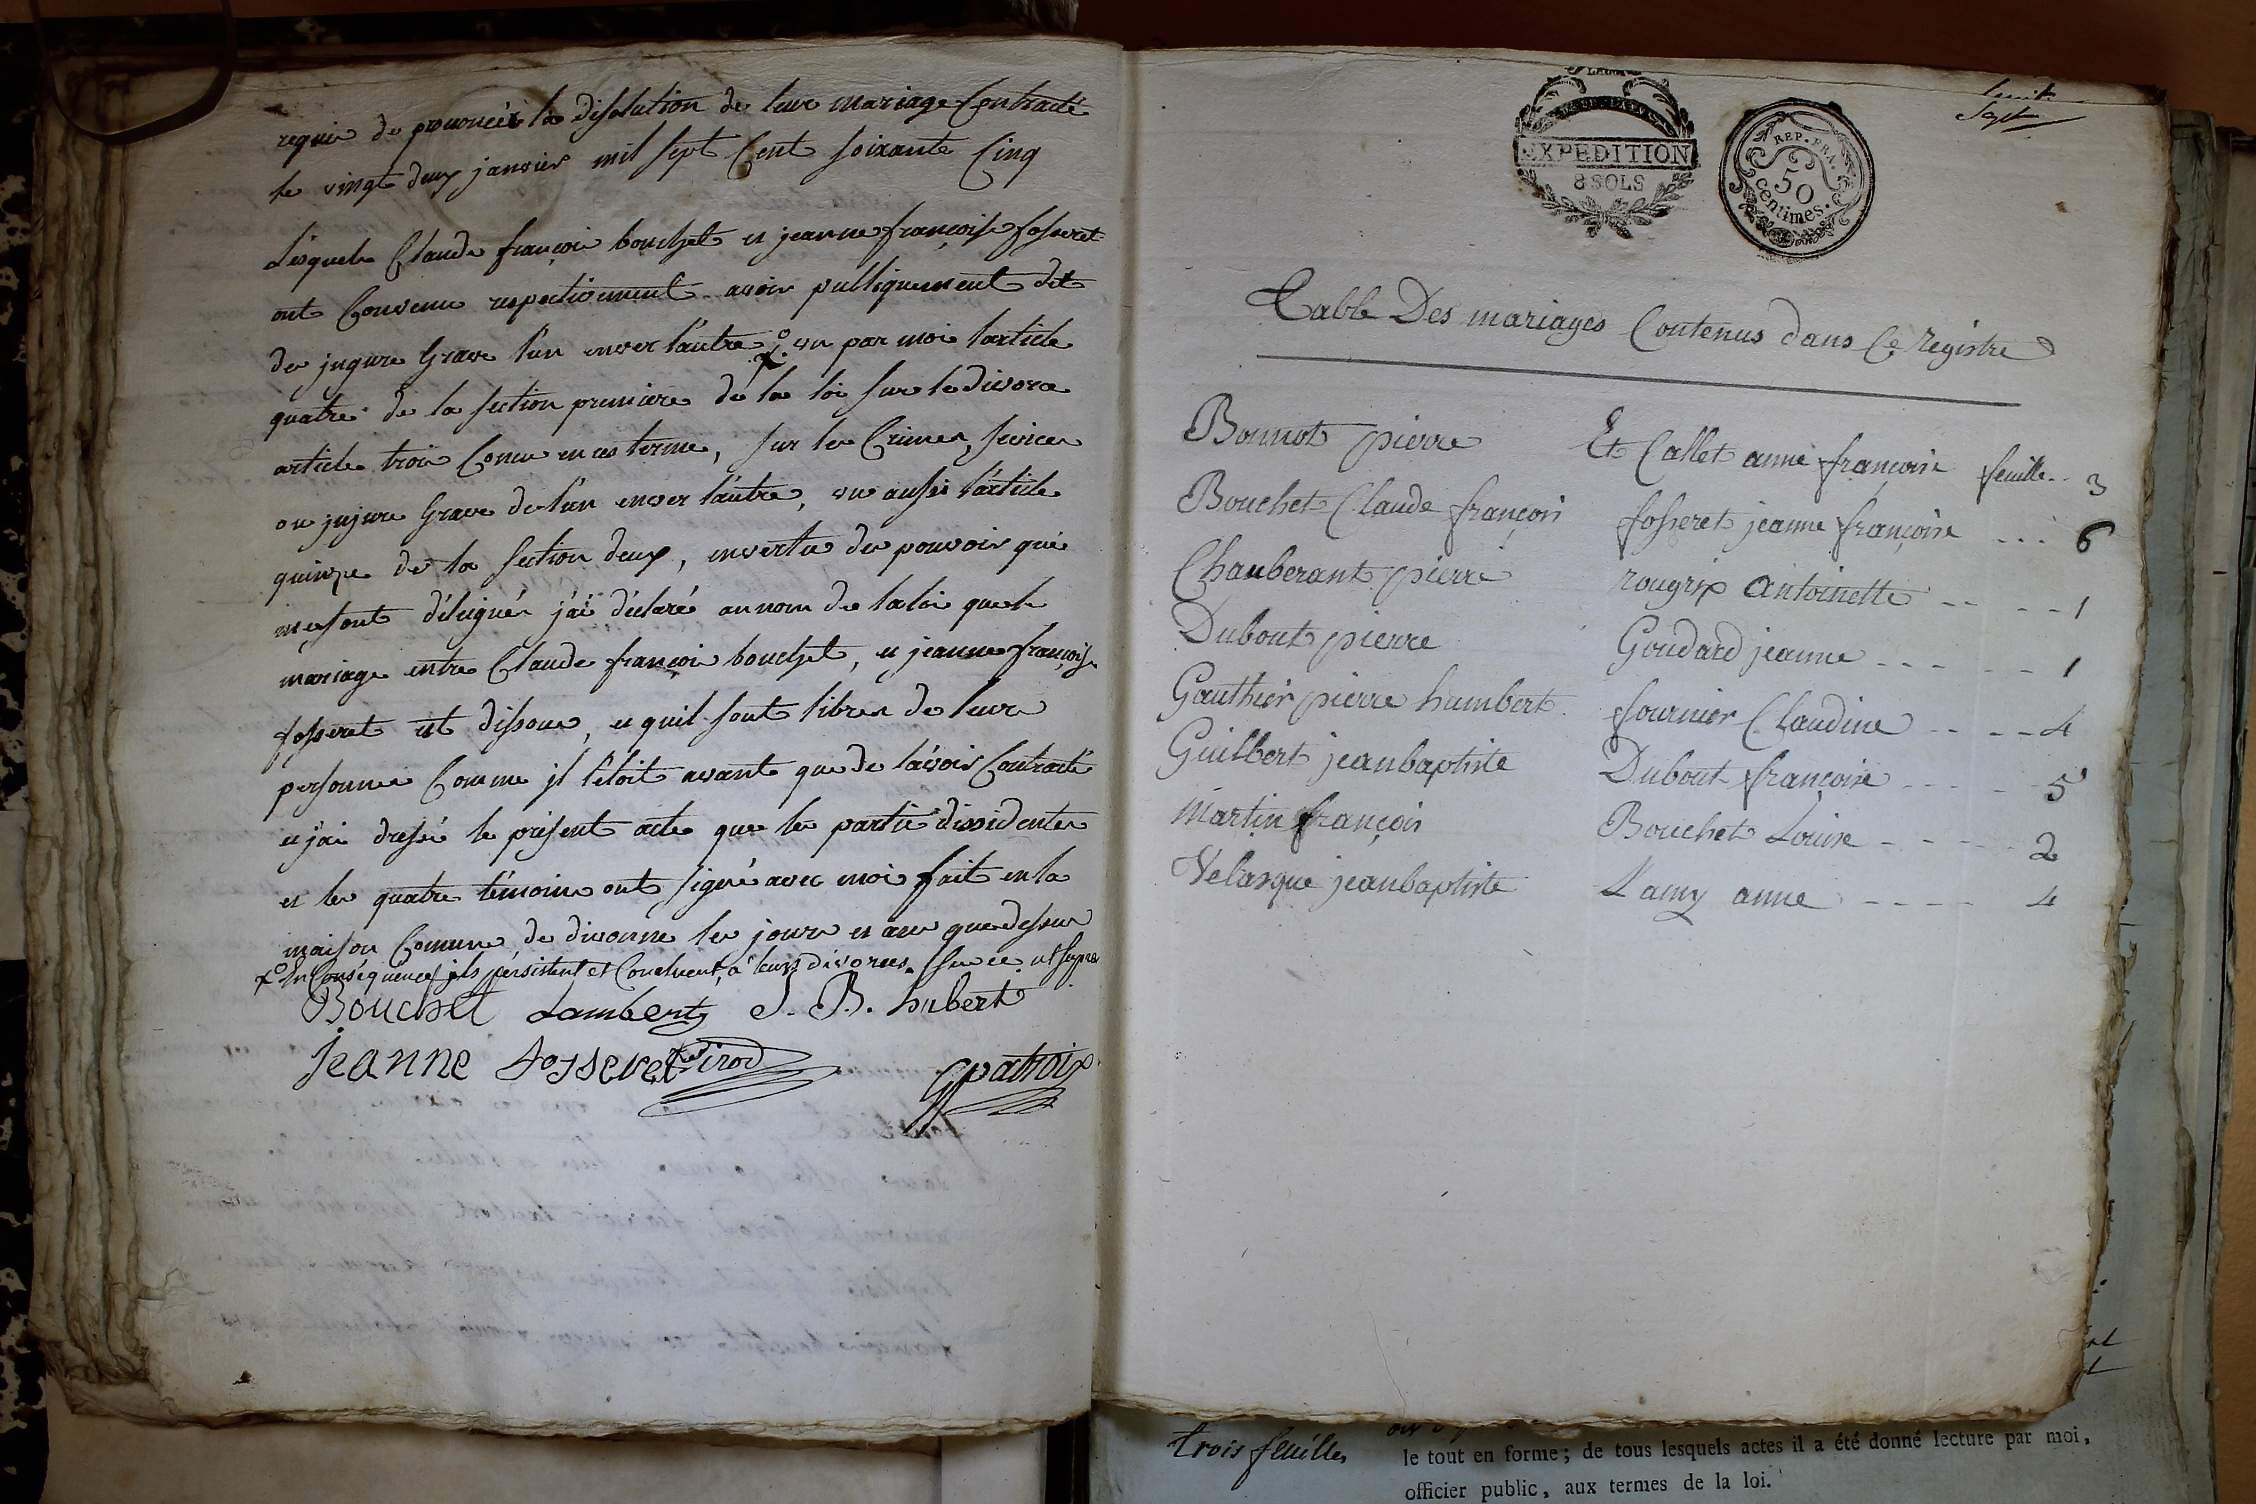 requis de prononcér la disolution de leur mariage Contracté
le vingt deux janvier mil sept Cent soixante Cinq
Lesquels Claude françois bouchet et jeanne françoise fosseret
ont Convenu respectivement avoir publiquement dit
des jnjure Grave l'un enver l'autre, vu par moi l'article
quatre de la section premiere de la loi sur le divorce
article trois Concu en ces terme, sur les Crimes, sevices
ou jnjure Grave de l'un enver l'autre, vu aussi l'article
quinze de la section deux, en vertu des pouvoir qui
me sont délégués j'ai déclaré au nom de la loi que le
mariage entre Claude françois bouchet, et jeanne françoise
fosseret est dissous, et quil sont libres de leurs
personnes Comme jl l'étoit avant que de l'avoir Contracté
et j'ai dressé le présent acte que les partie dissidentes
et les quatre témoins ont signé avec moi fait en la
maison Comune de divonne les jours et an que dessus
En Conséquence jls persistent et Concluent à leurs divorces. ut supra
Bouchet Lambert J. B. hubert
Jeanne Fosseret Girod
Patroix
EXPEDITION
8 SOLS
REP. FRA.
50
centimes.
huit
Sept
Table Des mariages Contenus dans Ce régistre
Bonnot pierre Et Callet anne françoise feuille.. 3
Bouchet Claude françois fosseret jeanne françoise ... 6
Chauberant pierre rougix Antoinette ---- 1
Dubout pierre Goudard jeanne ----- 1
Gauthier pierre humbert fournier Claudine ---- 4
Guilbert jeanbaptiste Dubout françoise ----- 5
Martin françois Bouchet Louise ----- 2
Velasque jeanbaptiste Lamy anne ---- 4
trois feuilles
le tout en forme ; de tous lesquels actes il a été donné lecture par moi,
officier public, aux termes de la loi.